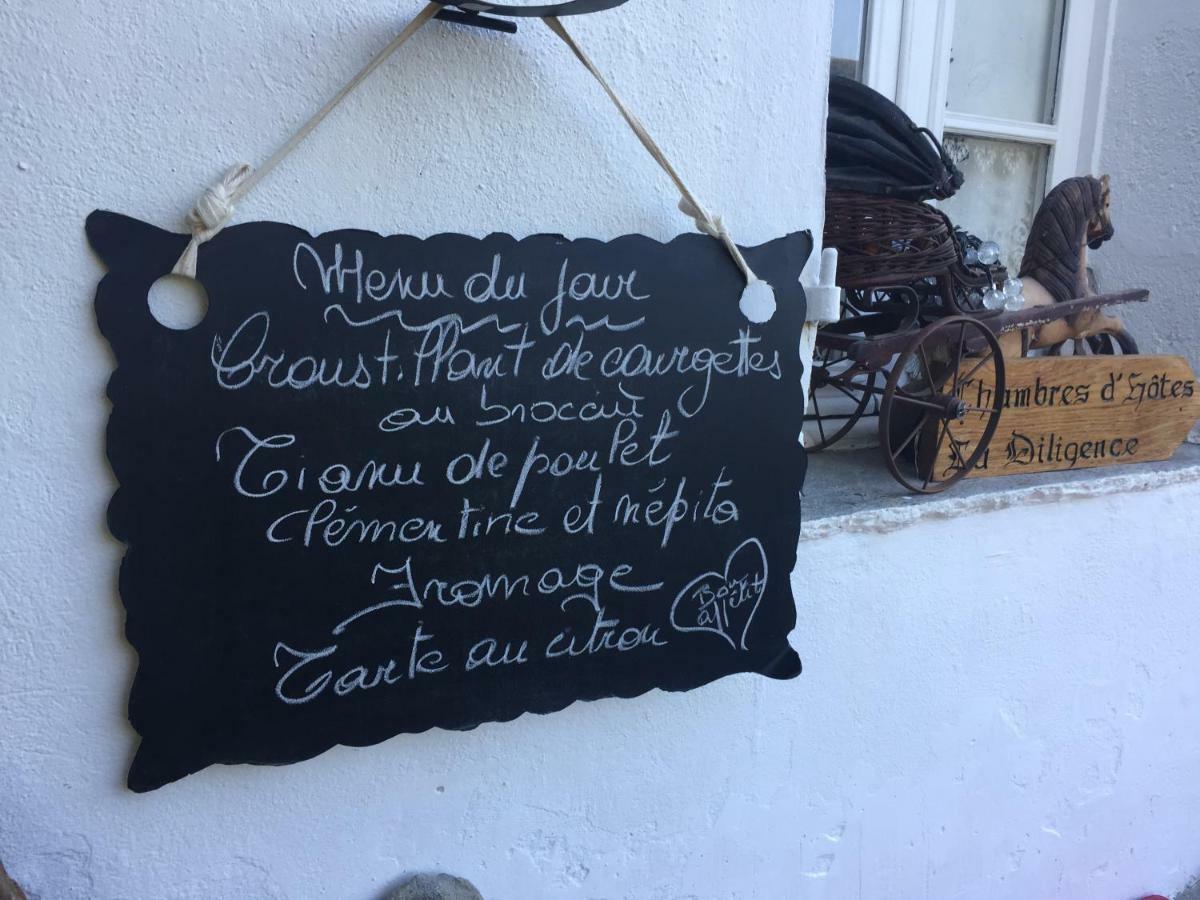 Menu du jour
Croustillant de courgettes
au brocciu
Tianu de poulet
Clémentine et népita
Fromage
Tarte au citron
Bon
app étit
Chambres d'hôtes
La Diligence